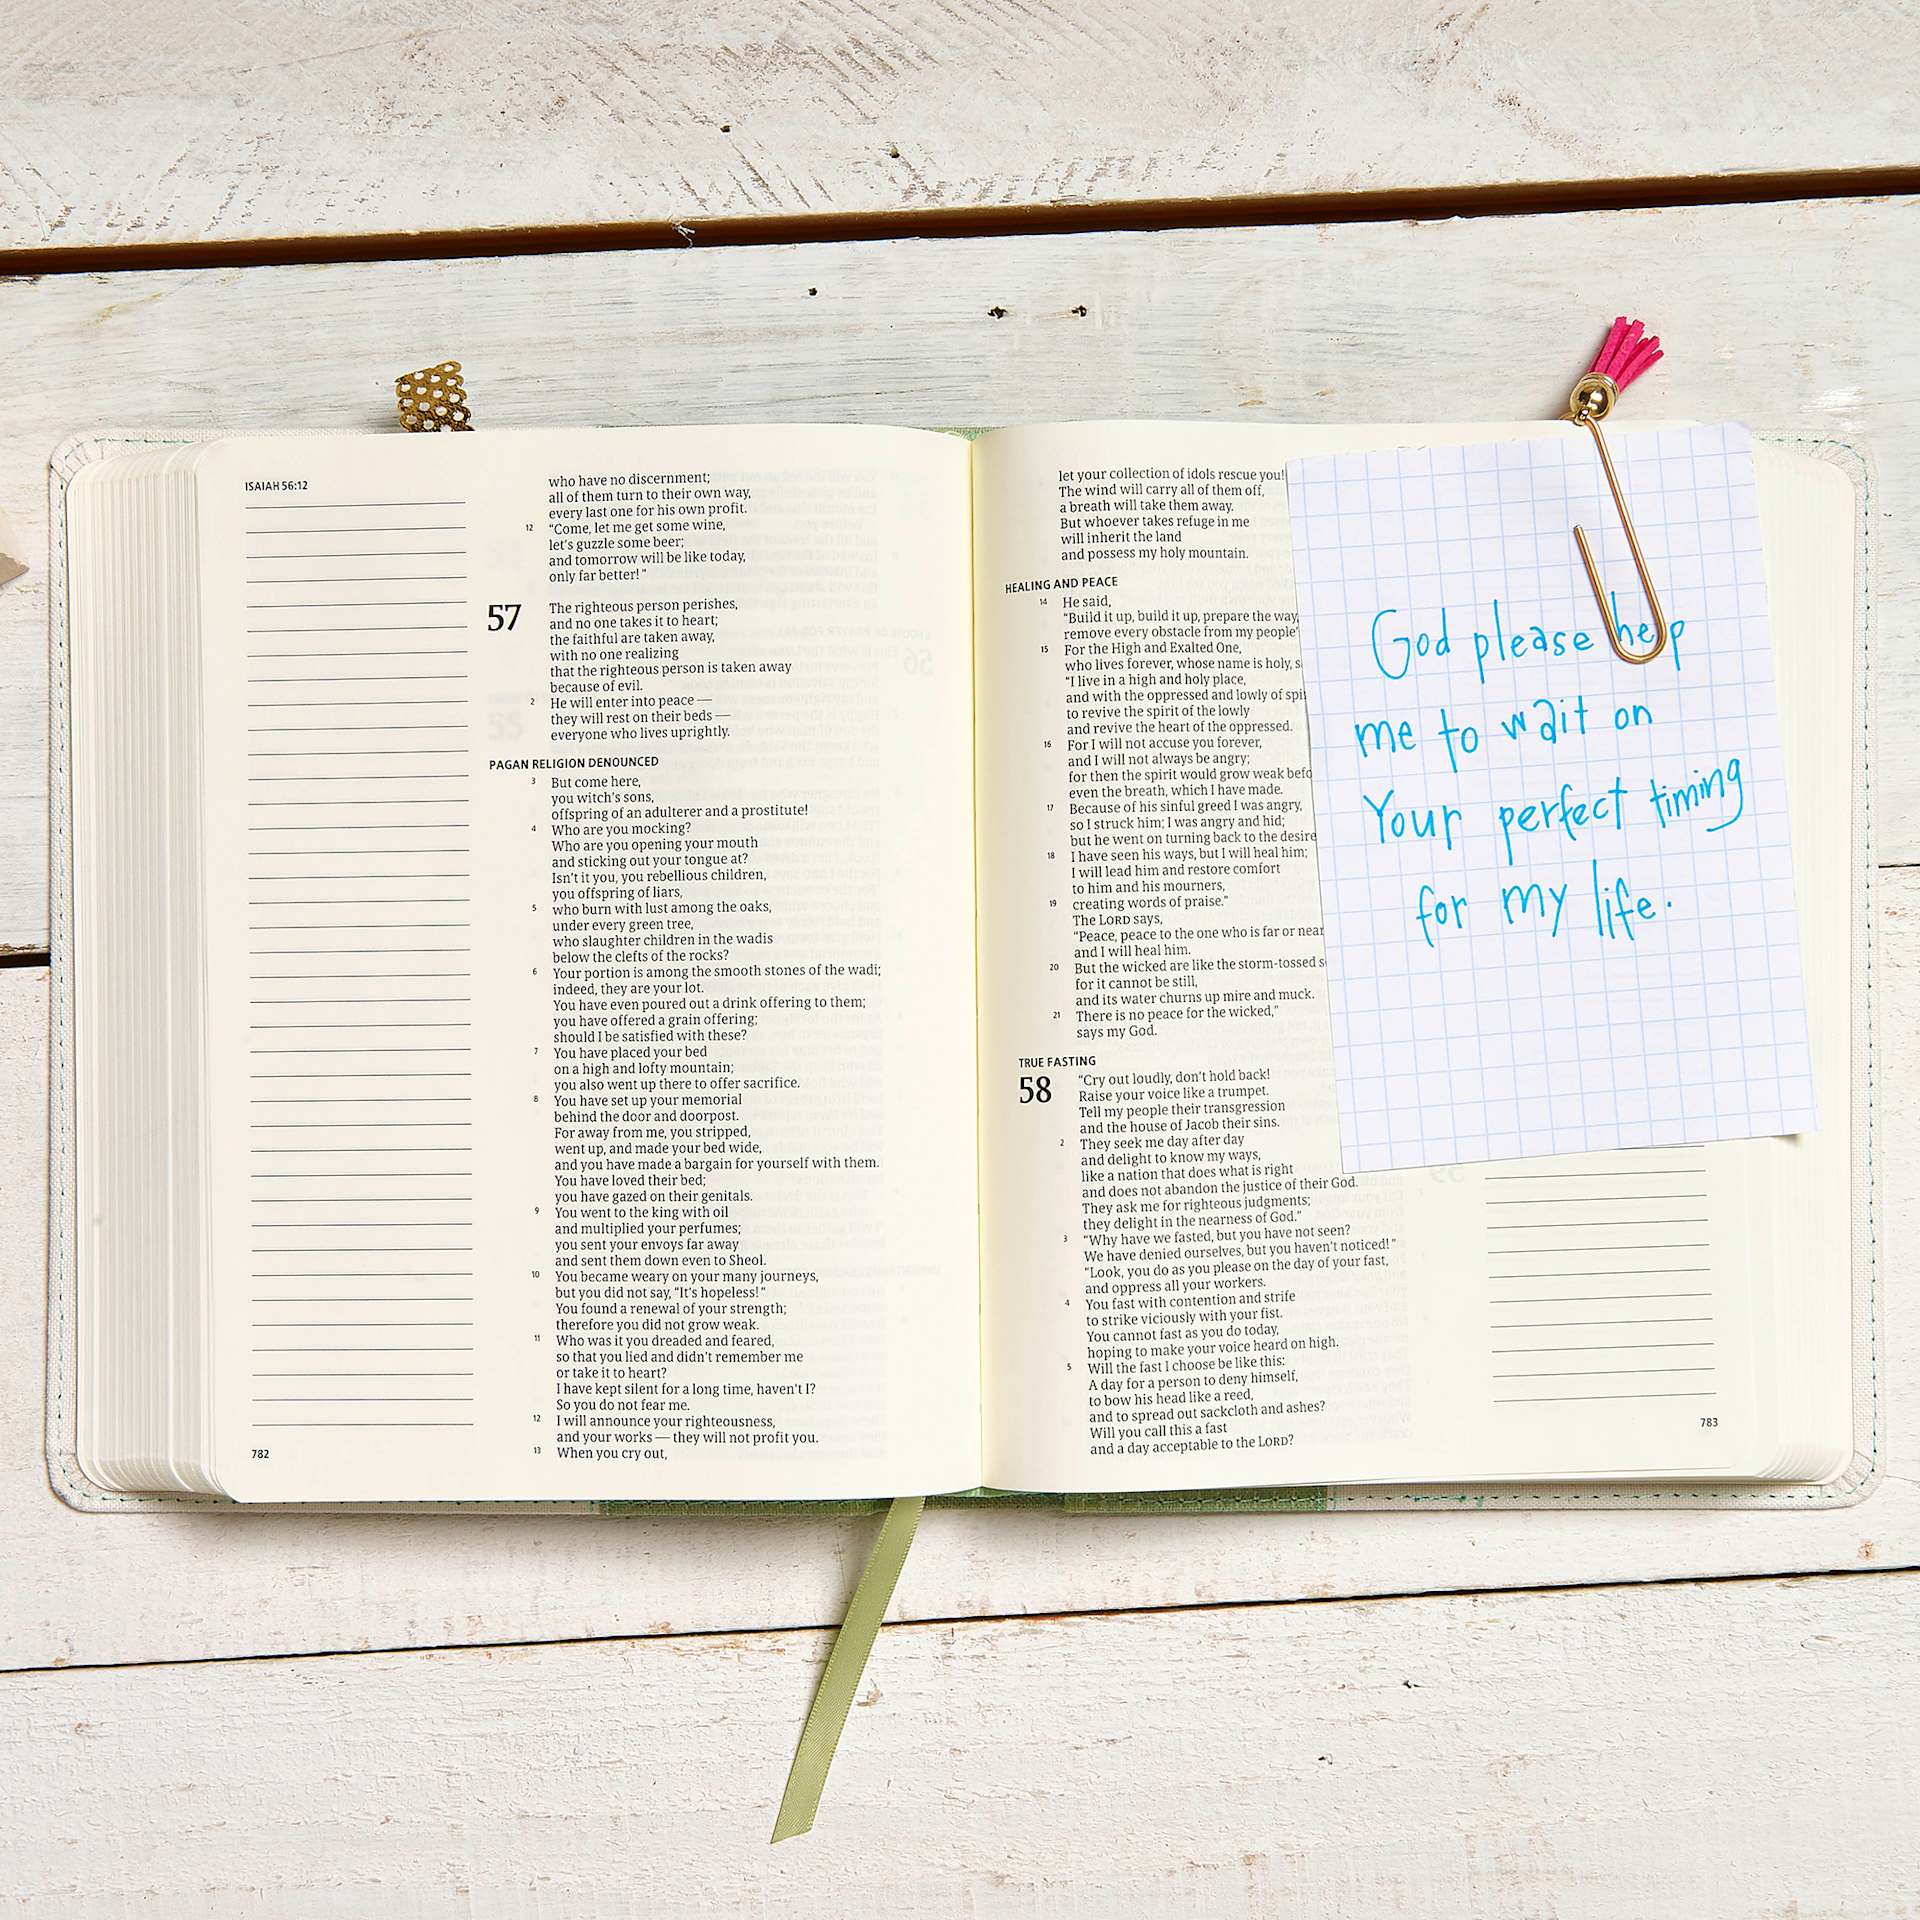 ISAIAH 56:12
who have no discernment;
all of them turn to their own way,
every last one for his own profit.
12 “Come, let me get some wine,
let’s guzzle some beer;
and tomorrow will be like today,
only far better!”
57 The righteous person perishes,
and no one takes it to heart;
the faithful are taken away,
with no one realizing
that the righteous person is taken away
because of evil.
2 He will enter into peace —
they will rest on their beds —
everyone who lives uprightly.
PAGAN RELIGION DENOUNCED
3 But come here,
you witch’s sons,
offspring of an adulterer and a prostitute!
4 Who are you mocking?
Who are you opening your mouth
and sticking out your tongue at?
Isn’t it you, you rebellious children,
you offspring of liars,
5 who burn with lust among the oaks,
under every green tree,
who slaughter children in the wadis
below the clefts of the rocks?
6 Your portion is among the smooth stones of the wadi;
indeed, they are your lot.
You have even poured out a drink offering to them;
you have offered a grain offering;
should I be satisfied with these?
7 You have placed your bed
on a high and lofty mountain;
you also went up there to offer sacrifice.
8 You have set up your memorial
behind the door and doorpost.
For away from me, you stripped,
went up, and made your bed wide,
and you have made a bargain for yourself with them.
You have loved their bed;
you have gazed on their genitals.
9 You went to the king with oil
and multiplied your perfumes;
you sent your envoys far away
and sent them down even to Sheol.
10 You became weary on your many journeys,
but you did not say, “It’s hopeless!”
You found a renewal of your strength;
therefore you did not grow weak.
11 Who was it you dreaded and feared,
so that you lied and didn’t remember me
or take it to heart?
I have kept silent for a long time, haven’t I?
So you do not fear me.
12 I will announce your righteousness,
and your works — they will not profit you.
13 When you cry out,
782
let your collection of idols rescue you!
The wind will carry all of them off,
a breath will take them away.
But whoever takes refuge in me
will inherit the land
and possess my holy mountain.
HEALING AND PEACE
14 He said,
“Build it up, build it up, prepare the way,
remove every obstacle from my people’
15 For the High and Exalted One,
who lives forever, whose name is holy, s
“I live in a high and holy place,
and with the oppressed and lowly of spi
to revive the spirit of the lowly
and revive the heart of the oppressed.
16 For I will not accuse you forever,
and I will not always be angry;
for then the spirit would grow weak befo
even the breath, which I have made.
17 Because of his sinful greed I was angry,
so I struck him; I was angry and hid;
but he went on turning back to the desire
18 I have seen his ways, but I will heal him;
I will lead him and restore comfort
to him and his mourners,
19 creating words of praise.”
The LORD says,
“Peace, peace to the one who is far or near
and I will heal him.
20 But the wicked are like the storm-tossed s
for it cannot be still,
and its water churns up mire and muck.
21 There is no peace for the wicked,”
says my God.
TRUE FASTING
58 “Cry out loudly, don’t hold back!
Raise your voice like a trumpet.
Tell my people their transgression
and the house of Jacob their sins.
2 They seek me day after day
and delight to know my ways,
like a nation that does what is right
and does not abandon the justice of their God.
They ask me for righteous judgments;
they delight in the nearness of God.”
3 “Why have we fasted, but you have not seen?
We have denied ourselves, but you haven’t noticed!”
“Look, you do as you please on the day of your fast,
and oppress all your workers.
4 You fast with contention and strife
to strike viciously with your fist.
You cannot fast as you do today,
hoping to make your voice heard on high.
5 Will the fast I choose be like this:
A day for a person to deny himself,
to bow his head like a reed,
and to spread out sackcloth and ashes?
Will you call this a fast
and a day acceptable to the LORD?
783
God please help
me to wait on
Your perfect timing
for my life.